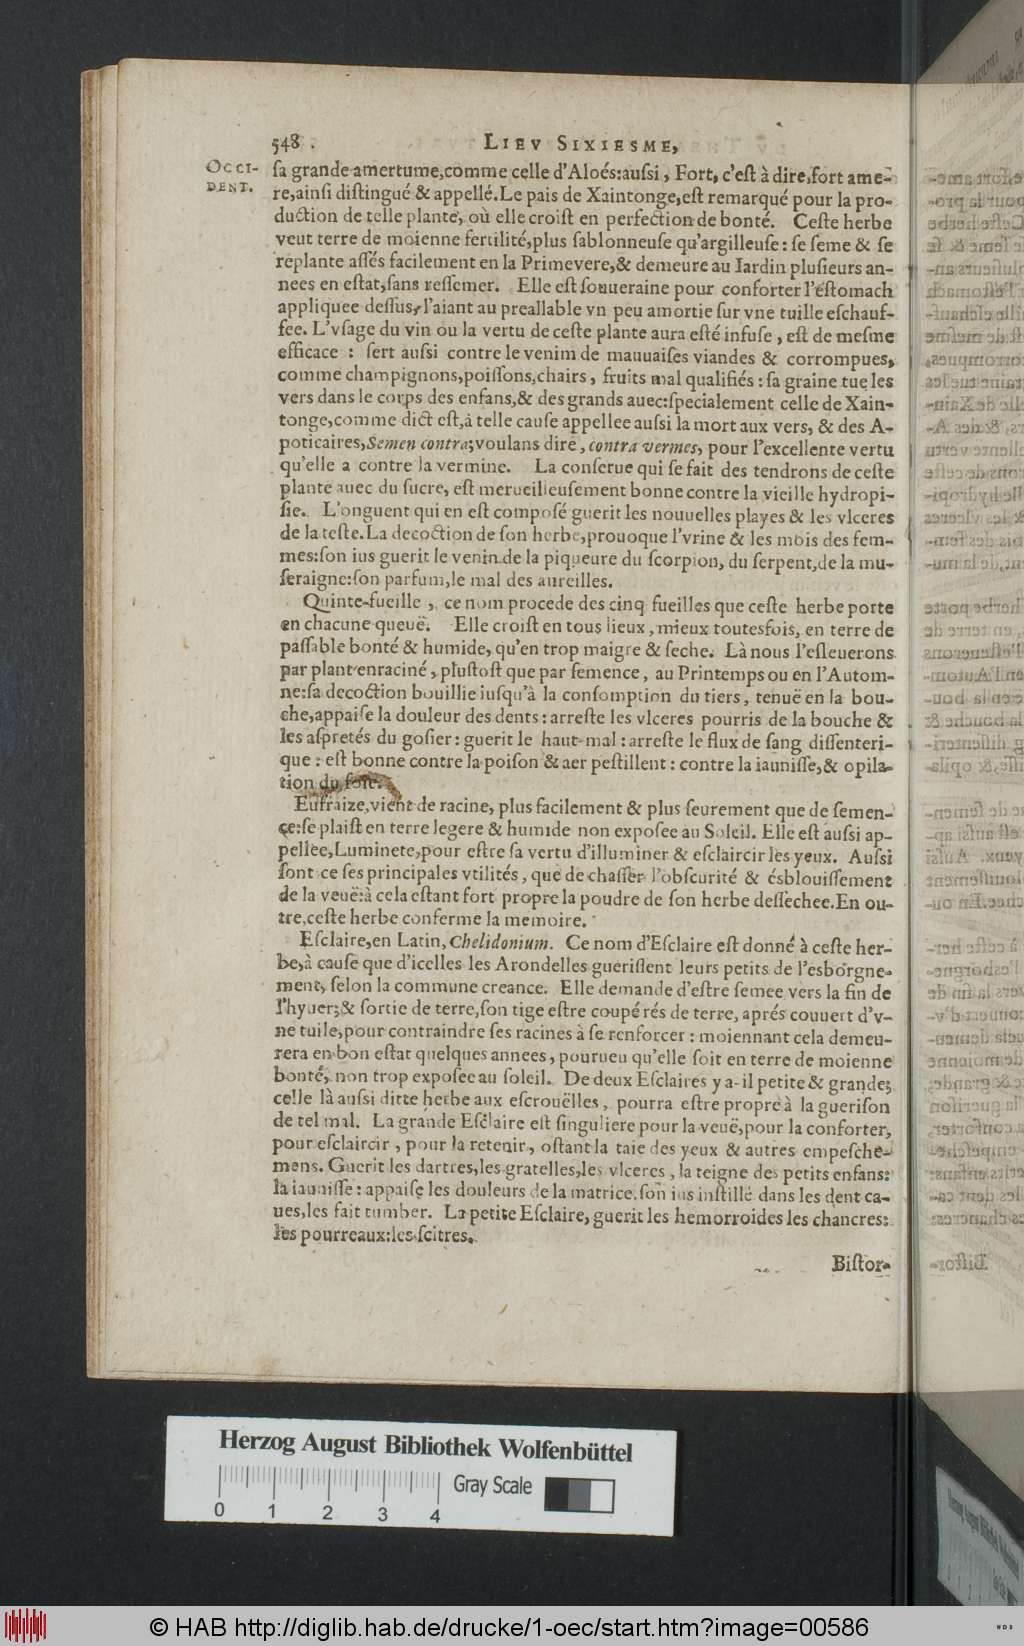 548. LIEV SIXIESME,
OCCI-
DENT.
ſa grande amertume, comme celle d'Aloés: auſsi, Fort, c'eſt à dire, fort ame-
re, ainſi diſtingué & appellé. Le pais de Xaintonge, eſt remarqué pour la pro-
duction de telle plante, où elle croiſt en perfection de bonté. Ceſte herbe
veut terre de moienne fertilité, plus ſablonneuſe qu'argilleuſe: ſe ſeme & ſe
replante aſſés facilement en la Primevere, & demeure au Iardin pluſieurs an-
nees en eſtat, ſans reſſemer. Elle eſt ſouueraine pour conforter l'eſtomach
appliquee deſſus, l'aiant au preallable vn peu amortie ſur vne tuille eſchauf-
fee. L'vſage du vin ou la vertu de ceſte plante aura eſté infuſe, eſt de meſme
efficace: ſert auſsi contre le venim de mauuaiſes viandes & corrompues,
comme champignons, poiſſons, chairs, fruits mal qualifiés: ſa graine tue les
vers dans le corps des enfans, & des grands auec: ſpecialement celle de Xain-
tonge, comme dict eſt, à telle cauſe appellee auſsi la mort aux vers, & des A-
poticaires, Semen contra; voulans dire, contra vermes, pour l'excellente vertu
qu'elle a contre la vermine. La conſerue qui ſe fait des tendrons de ceſte
plante auec du ſucre, eſt merueilleuſement bonne contre la vieille hydropi-
ſie. L'onguent qui en eſt compoſé guerit les nouuelles playes & les vlceres
de la teſte. La decoction de ſon herbe, prouoque l'vrine & les mois des fem-
mes: ſon ius guerit le venin de la piqueure du ſcorpion, du ſerpent, de la mu-
ſeraigne: ſon parfum, le mal des aureilles.
Quinte-fueille, ce nom procede des cinq fueilles que ceſte herbe porte
en chacune queuë. Elle croiſt en tous lieux, mieux toutesfois, en terre de
paſſable bonté & humide, qu'en trop maigre & ſeche. Là nous l'eſleuerons
par plant enraciné, pluſtoſt que par ſemence, au Printemps ou en l'Autom-
ne: ſa decoction bouillie iuſqu'à la conſomption du tiers, tenuë en la bou-
che, appaiſe la douleur des dents: arreſte les vlceres pourris de la bouche &
les aſpretés du goſier: guerit le haut-mal: arreſte le flux de ſang diſſenteri-
que: eſt bonne contre la poiſon & aer peſtillent: contre la iauniſſe, & opila-
tion du foie.
Eufraize, vient de racine, plus facilement & plus ſeurement que de ſemen-
ce: ſe plaiſt en terre legere & humide non expoſee au Soleil. Elle eſt auſsi ap-
pellee, Luminete, pour eſtre ſa vertu d'illuminer & eſclaircir les yeux. Auſsi
ſont ce ſes principales vtilités, que de chaſſer l'obſcurité & ésblouiſſement
de la veuë: à cela eſtant fort propre la poudre de ſon herbe deſſechee. En ou-
tre, ceſte herbe conferme la memoire.
Eſclaire, en Latin, Chelidonium. Ce nom d'Eſclaire eſt donné à ceſte her-
be, à cauſe que d'icelles les Arondelles gueriſſent leurs petits de l'esborgne-
ment, ſelon la commune creance. Elle demande d'eſtre ſemee vers la fin de
l'hyuer; & ſortie de terre, ſon tige eſtre coupé rés de terre, aprés couuert d'v-
ne tuile, pour contraindre ſes racines à ſe renforcer: moiennant cela demeu-
rera en bon eſtat quelques annees, pourueu qu'elle ſoit en terre de moienne
bonté, non trop expoſee au ſoleil. De deux Eſclaires y a-il petite & grande;
celle là auſsi ditte herbe aux eſcrouëlles, pourra eſtre propre à la gueriſon
de tel mal. La grande Eſclaire eſt ſinguliere pour la veuë, pour la conforter,
pour eſclaircir, pour la retenir, oſtant la taie des yeux & autres empeſche-
mens. Guerit les dartres, les gratelles, les vlceres, la teigne des petits enfans:
la iauniſſe: appaiſe les douleurs de la matrice. ſon ius inſtillé dans les dent ca-
ues, les fait tumber. La petite Eſclaire, guerit les hemorroides les chancres:
les pourreaux: les ſcitres.
Biſtor-
Herzog August Bibliothek Wolfenbüttel
0 1 2 3 4
Gray Scale
© HAB http://diglib.hab.de/drucke/1-oec/start.htm?image=00586